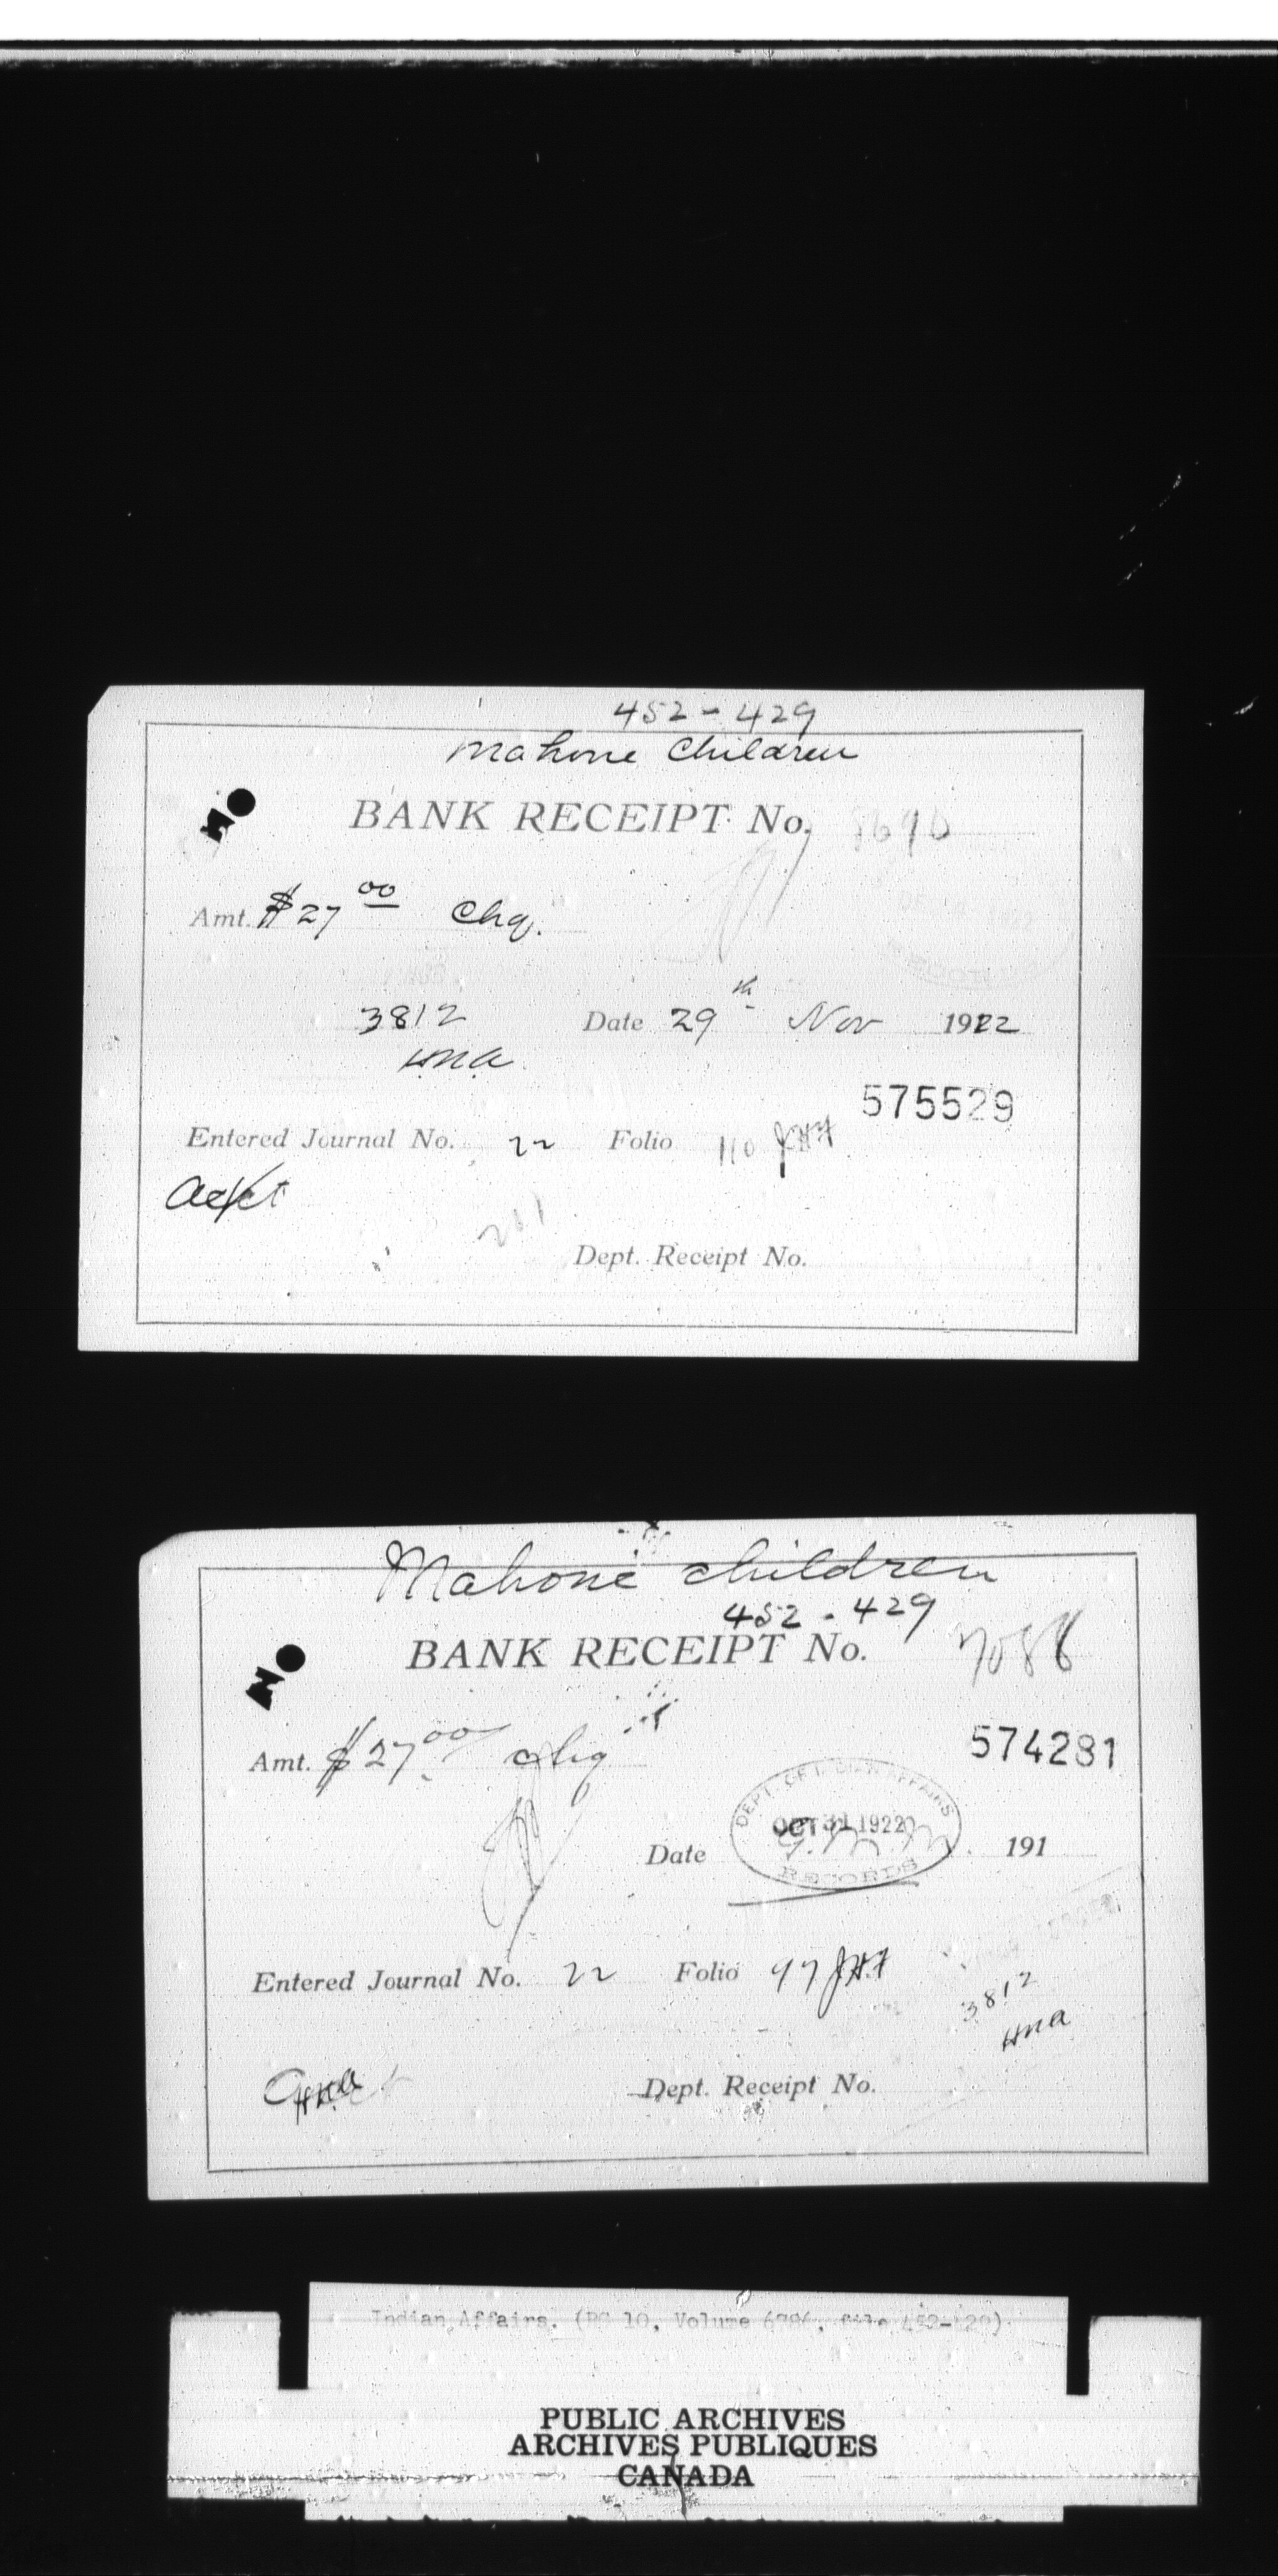 452-429
Mahone Children
BANK RECEIPT No. 8690
Amt. $27 00 Chq.
3812 Date 29th Nov 1922
HNA
575529
Entered Journal No. 22 Folio 110 JHF
201
Dept. Receipt No.
Mahone children
452-429
BANK RECEIPT No. 7088
574281
Amt. $27 00 chq
DEPT. OF INDIAN AFFAIRS
OCT 31 1922
RECORDS
Date 191
Entered Journal No. 22 Folio 97 JHF
3812
HNA
Dept. Receipt No.
Indian Affairs. (RG 10, Volume 6786, file 452-429)
PUBLIC ARCHIVES
ARCHIVES PUBLIQUES
CANADA